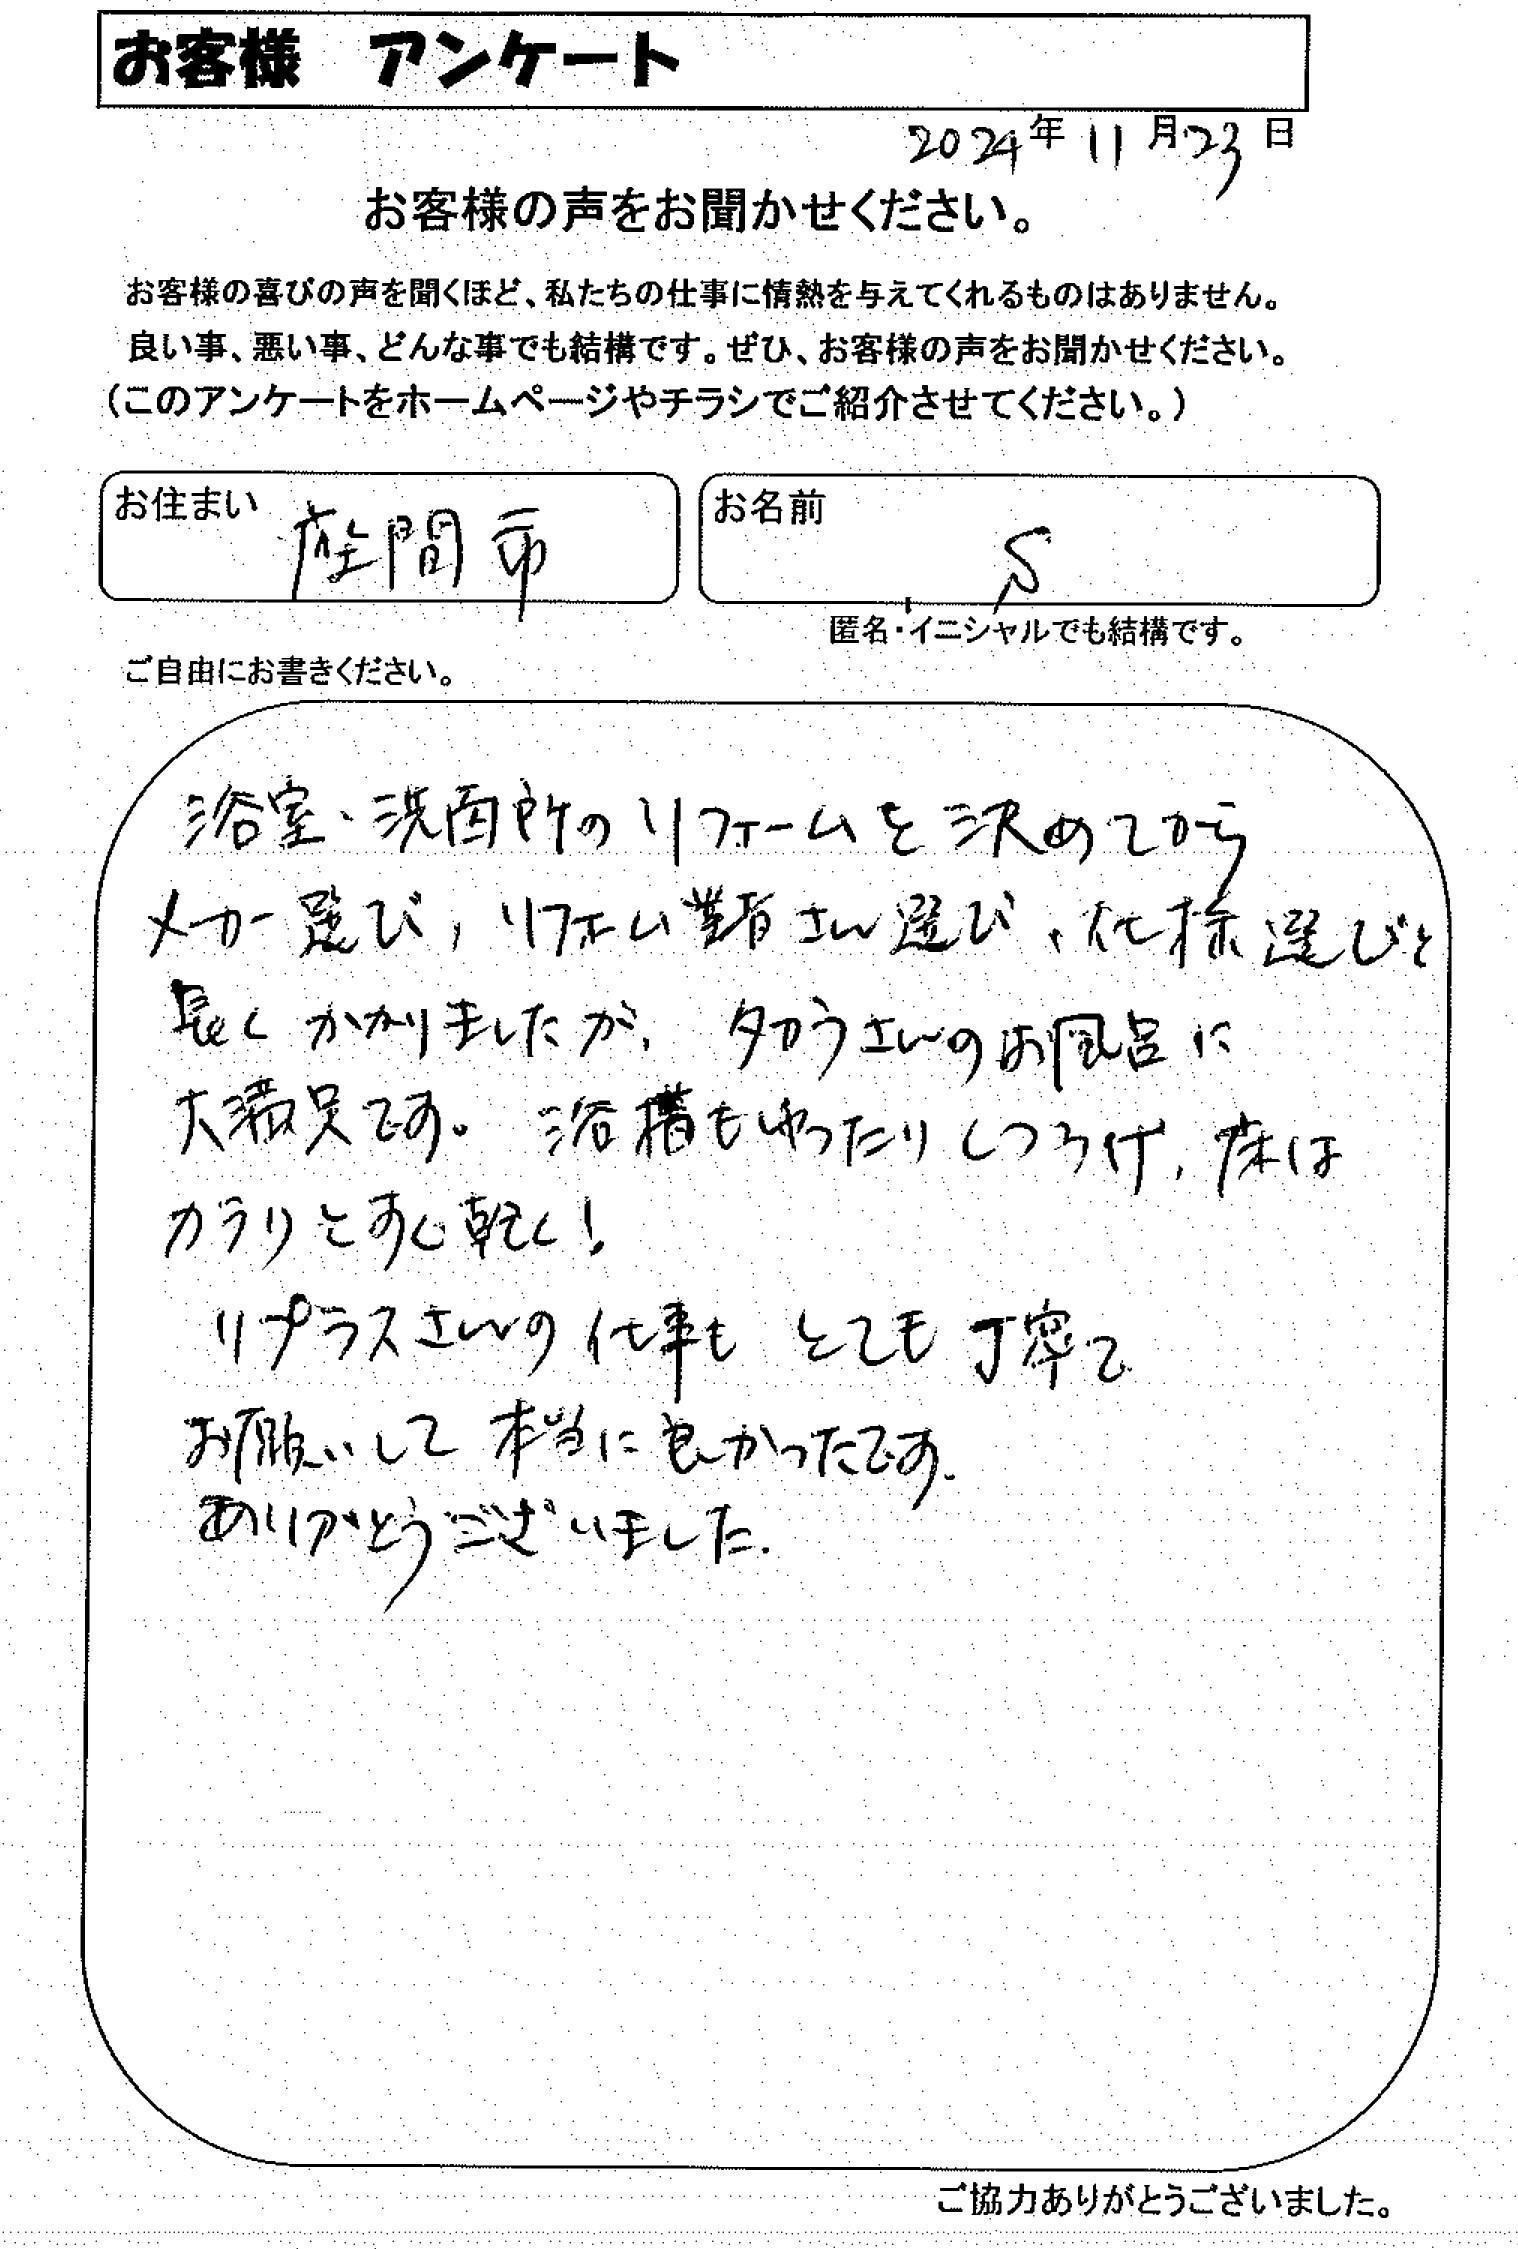 お客様　アンケート
2024年11月23日
お客様の声をお聞かせください。
お客様の喜びの声を聞くほど、私たちの仕事に情熱を与えてくれるものはありません。
良い事、悪い事、どんな事でも結構です。ぜひ、お客様の声をお聞かせください。
（このアンケートをホームページやチラシでご紹介させてください。）
お住まい 座間市
お名前 S
匿名・イニシャルでも結構です。
ご自由にお書きください。
浴室・洗面所のリフォームを決めてから
メーカー選び、リフォーム業者さん選び、仕様選びと
長くかかりましたが、タカラさんのお風呂に
大満足です。浴槽もゆったりしつろげ、床は
カラリとすぐ乾く！
リプラスさんの仕事もとても丁寧で
お願いして本当に良かったです。
ありがとうございました。
ご協力ありがとうございました。